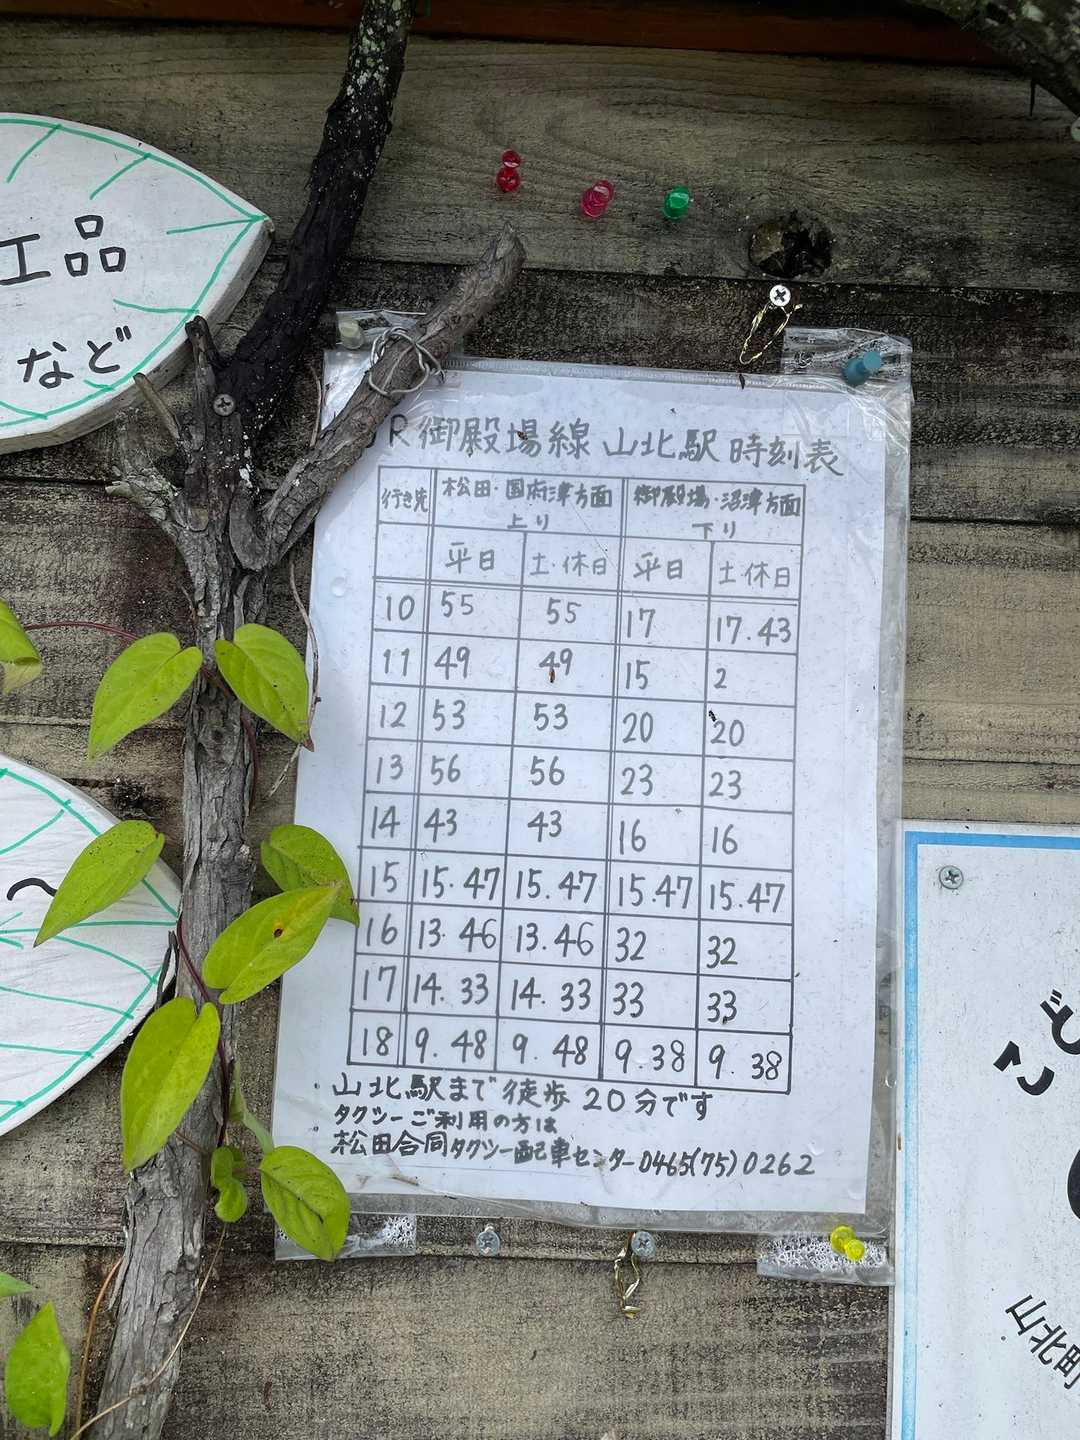 工品
など
JR御殿場線 山北駅 時刻表
行き先 松田・国府津方面 上り 御殿場・沼津方面 下り
平日 土・休日 平日 土・休日
10 55 55 17 17.43
11 49 49 15 2
12 53 53 20 20
13 56 56 23 23
14 43 43 16 16
15 15.47 15.47 15.47 15.47
16 13.46 13.46 32 32
17 14.33 14.33 33 33
18 9.48 9.48 9.38 9.38
山北駅まで徒歩20分です
タクシーご利用の方は
松田合同タクシー配車センター0465(75)0262
〜
ご
山北町